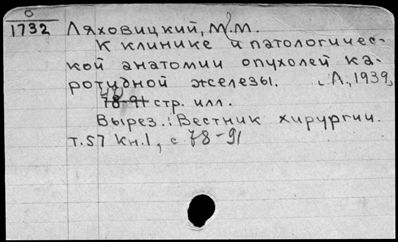 0
1732 Ляховицкий, М.М.
К клинике и патологичес-
кой анатомии опухолей ка-
ротидной железы. Л., 1939,
78-91 стр. илл.
Вырез.: Вестник хирургии.
т.57 кн.1, с 78-91